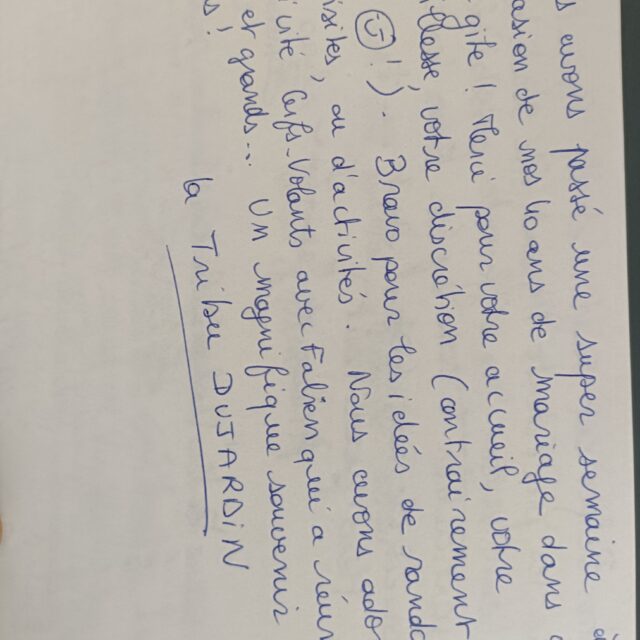 avons passé une super semaine
de nos 40 ans de mariage dans
gîte ! Merci pour votre accueil, votre
votre discrétion (contrairement
!). Bravo pour les idées de
ou d'activités. Nous avons
Cerfs-Volants avec Fabien qui a
et grands... Un magnifique souvenir
!
la Tribu DUJARDIN